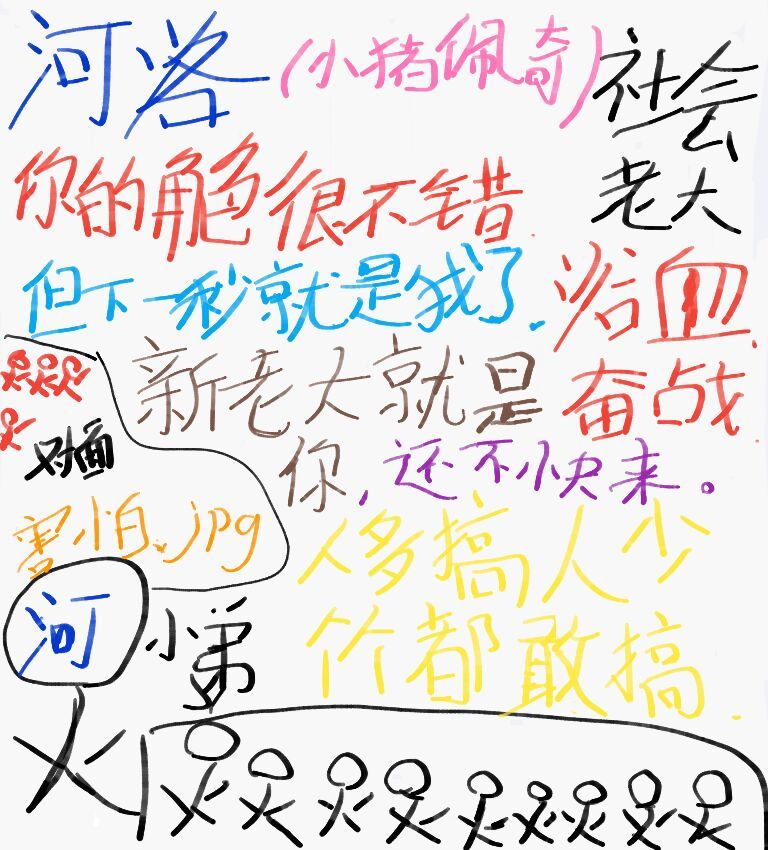 河洛（小猪佩奇）社会
老大
你的角色很不错.
但下一秒就是我了.
浴血
奋战.
新老大就是
你,还不快来。
对面
害怕.jpg
人多搞人少
河
小弟
竹都敢搞.